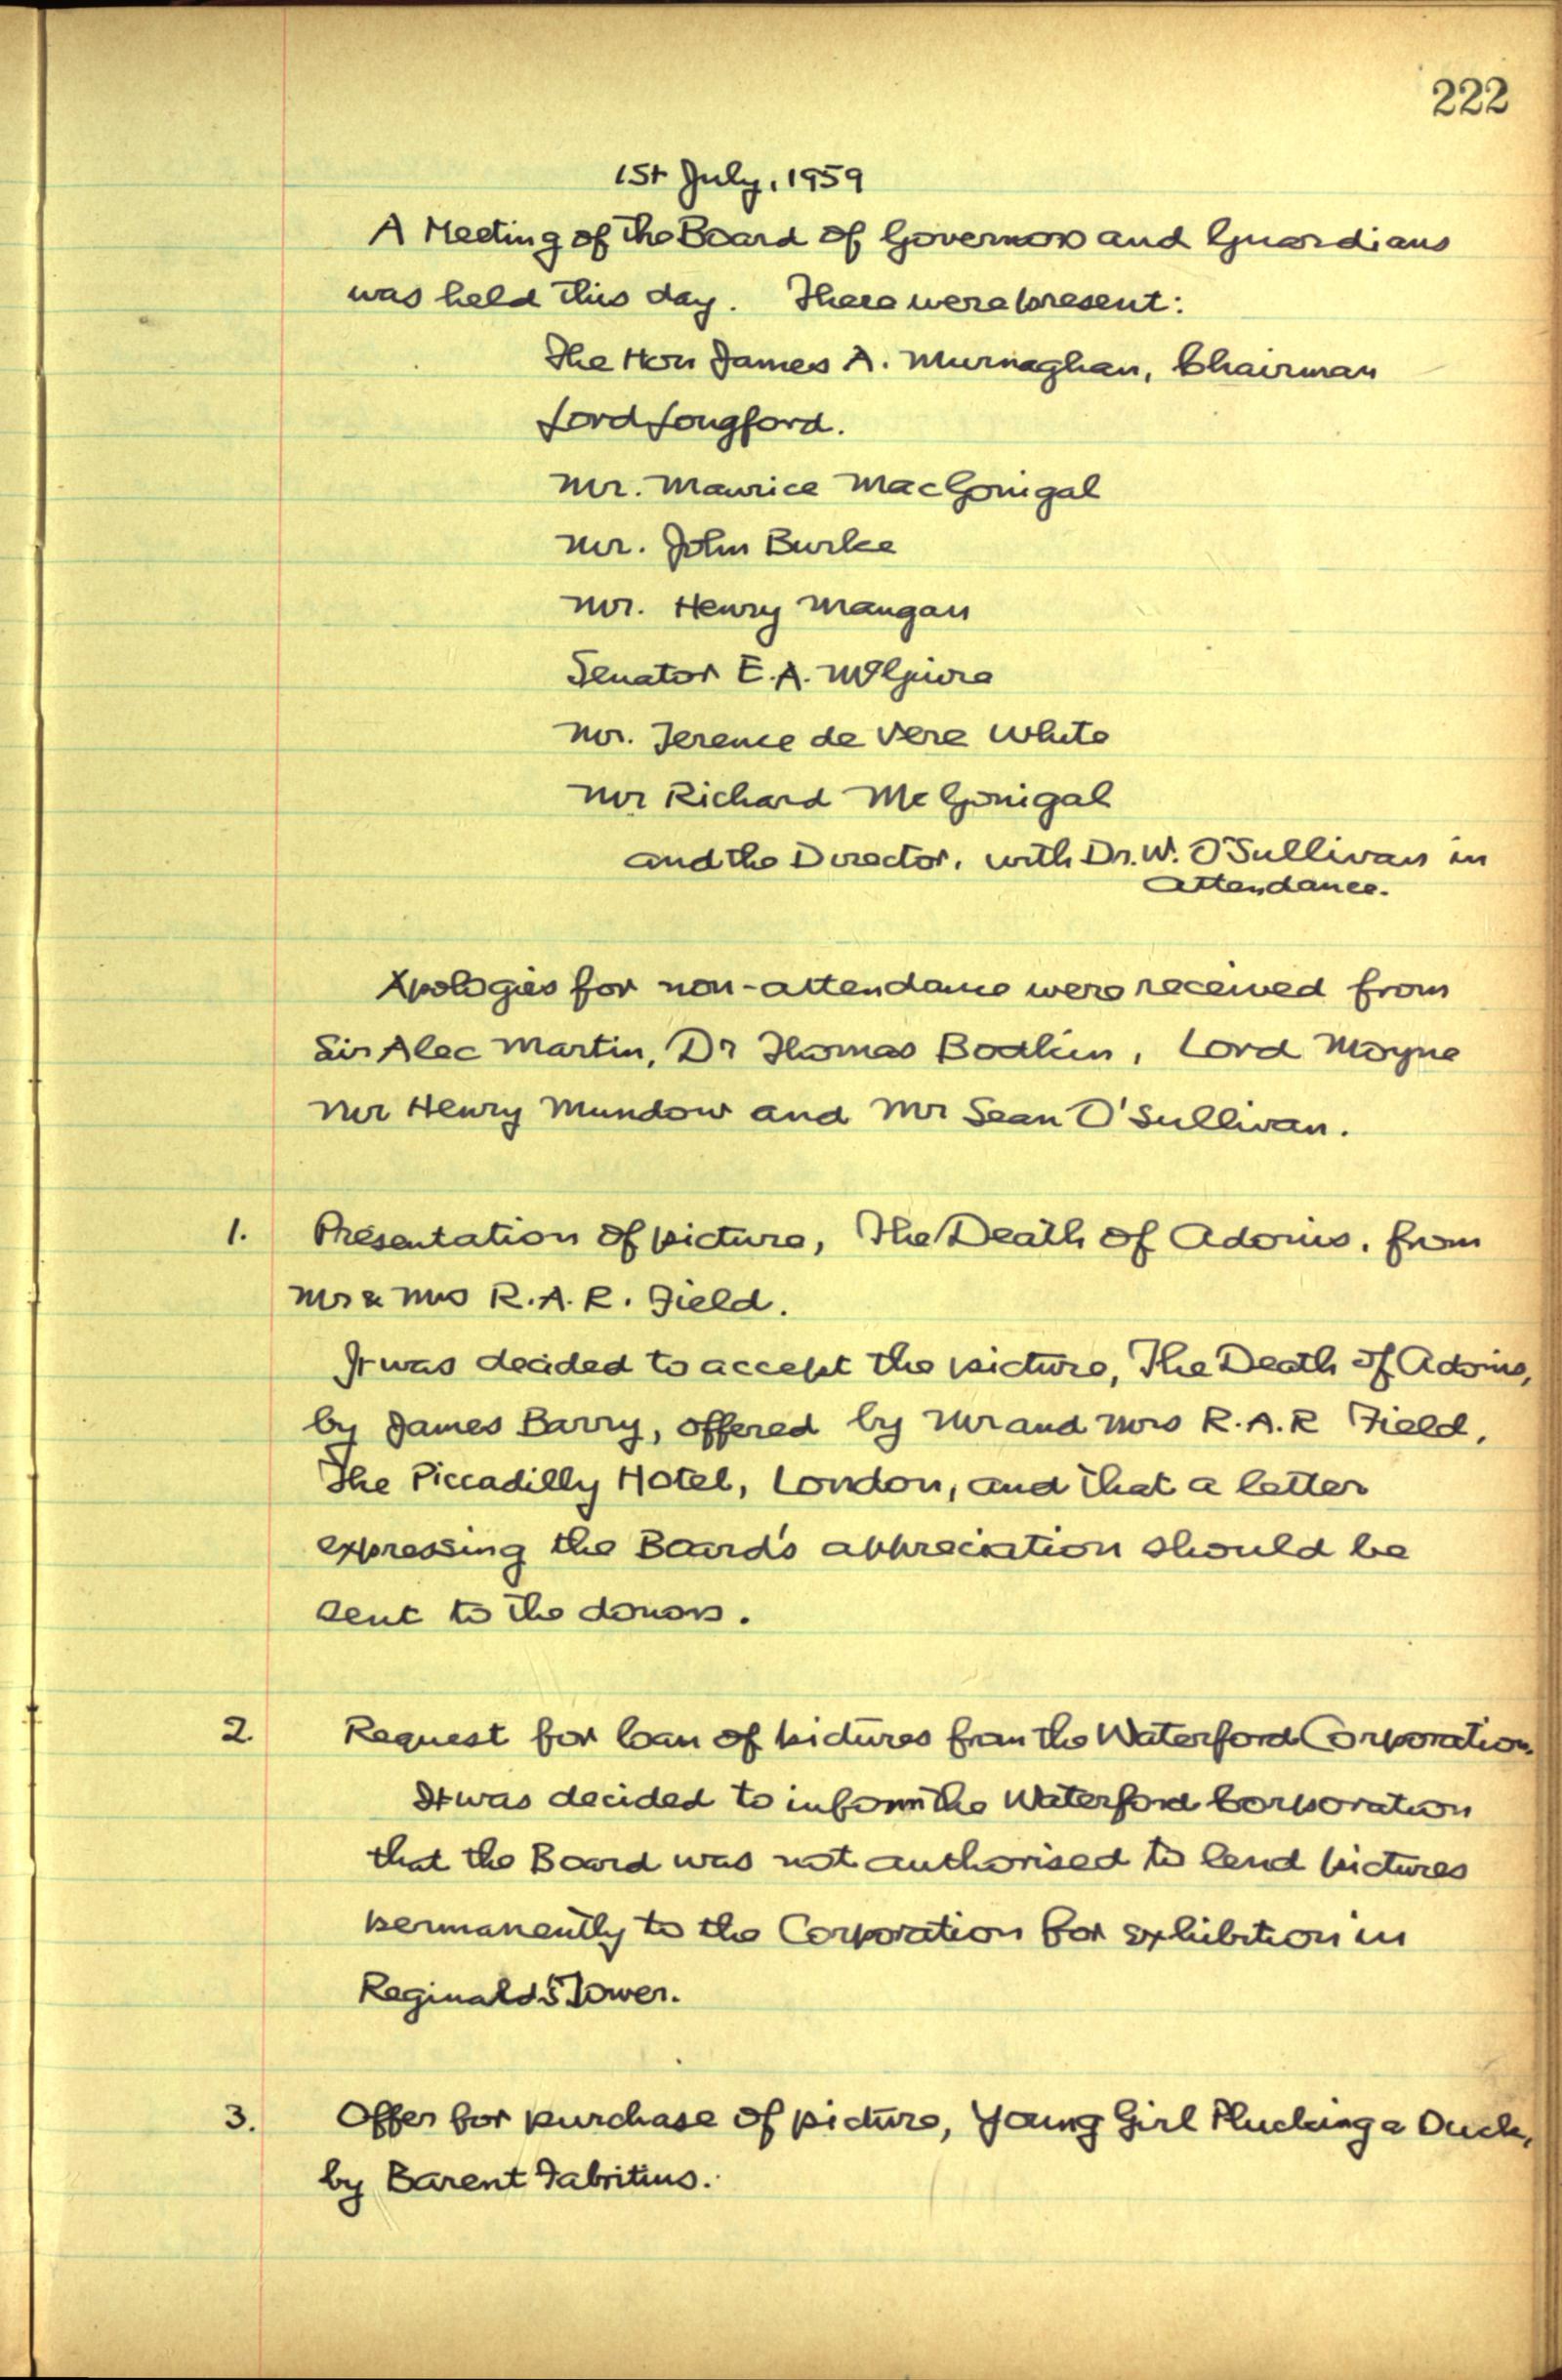 222
1st July, 1959
A Meeting of the Board of Governors and Guardians
was held this day. There were present:
The Hon James A. Murnaghan, Chairman
Lord Longford.
Mr. Maurice MacGonigal
Mr. John Burke
Mr. Henry Mangan
Senator E.A. McGuire
Mr. Terence de Vere White
Mr Richard McGonigal
and the Director, with Dr. W. O'Sullivan in
attendance.
Apologies for non-attendance were received from
Sir Alec Martin, Dr Thomas Bodkin, Lord Moyne
Mr Henry Mundow and Mr Sean O'Sullivan.
1. Presentation of picture, The Death of Adonis, from
Mr & Mrs R.A.R. Field.
It was decided to accept the picture, The Death of Adonis,
by James Barry, offered by Mr and Mrs R.A.R Field,
The Piccadilly Hotel, London, and that a letter
expressing the Board's appreciation should be
sent to the donors.
2. Request for loan of pictures from the Waterford Corporation.
It was decided to inform the Waterford Corporation
that the Board was not authorised to lend pictures
permanently to the Corporation for exhibition in
Reginald's Tower.
3. Offer for purchase of picture, Young Girl Plucking a Duck,
by Barent Fabritius.